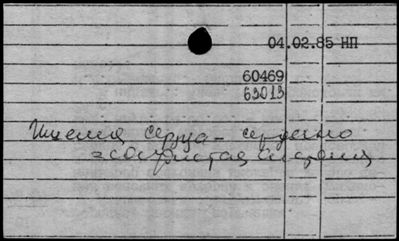 04.02.85 НП
60469
63013
Ишемия сердца – сердечно
сосудистая система